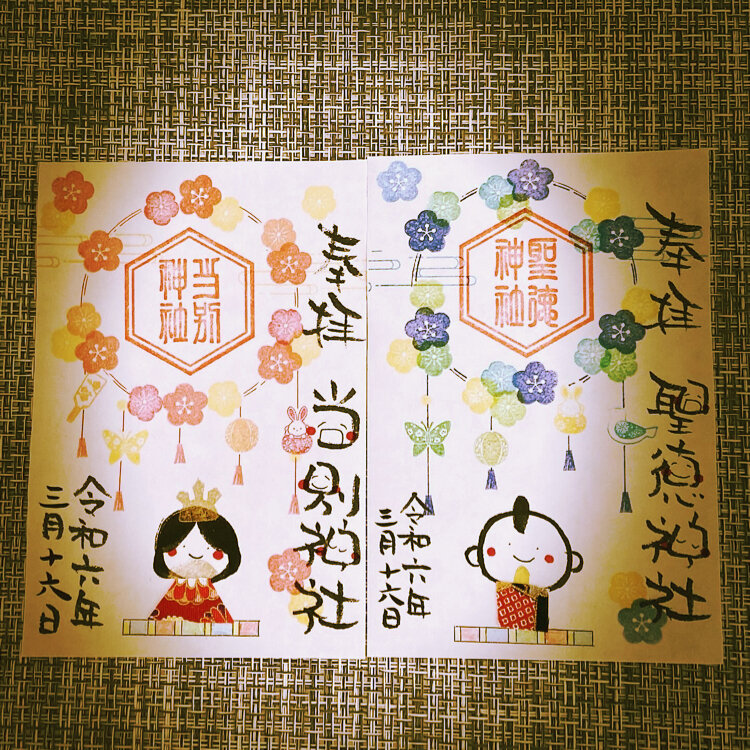 奉拝
当別神社
当別
神社
令和六年
三月十六日
奉拝
聖徳神社
聖徳
神社
令和六年
三月十六日